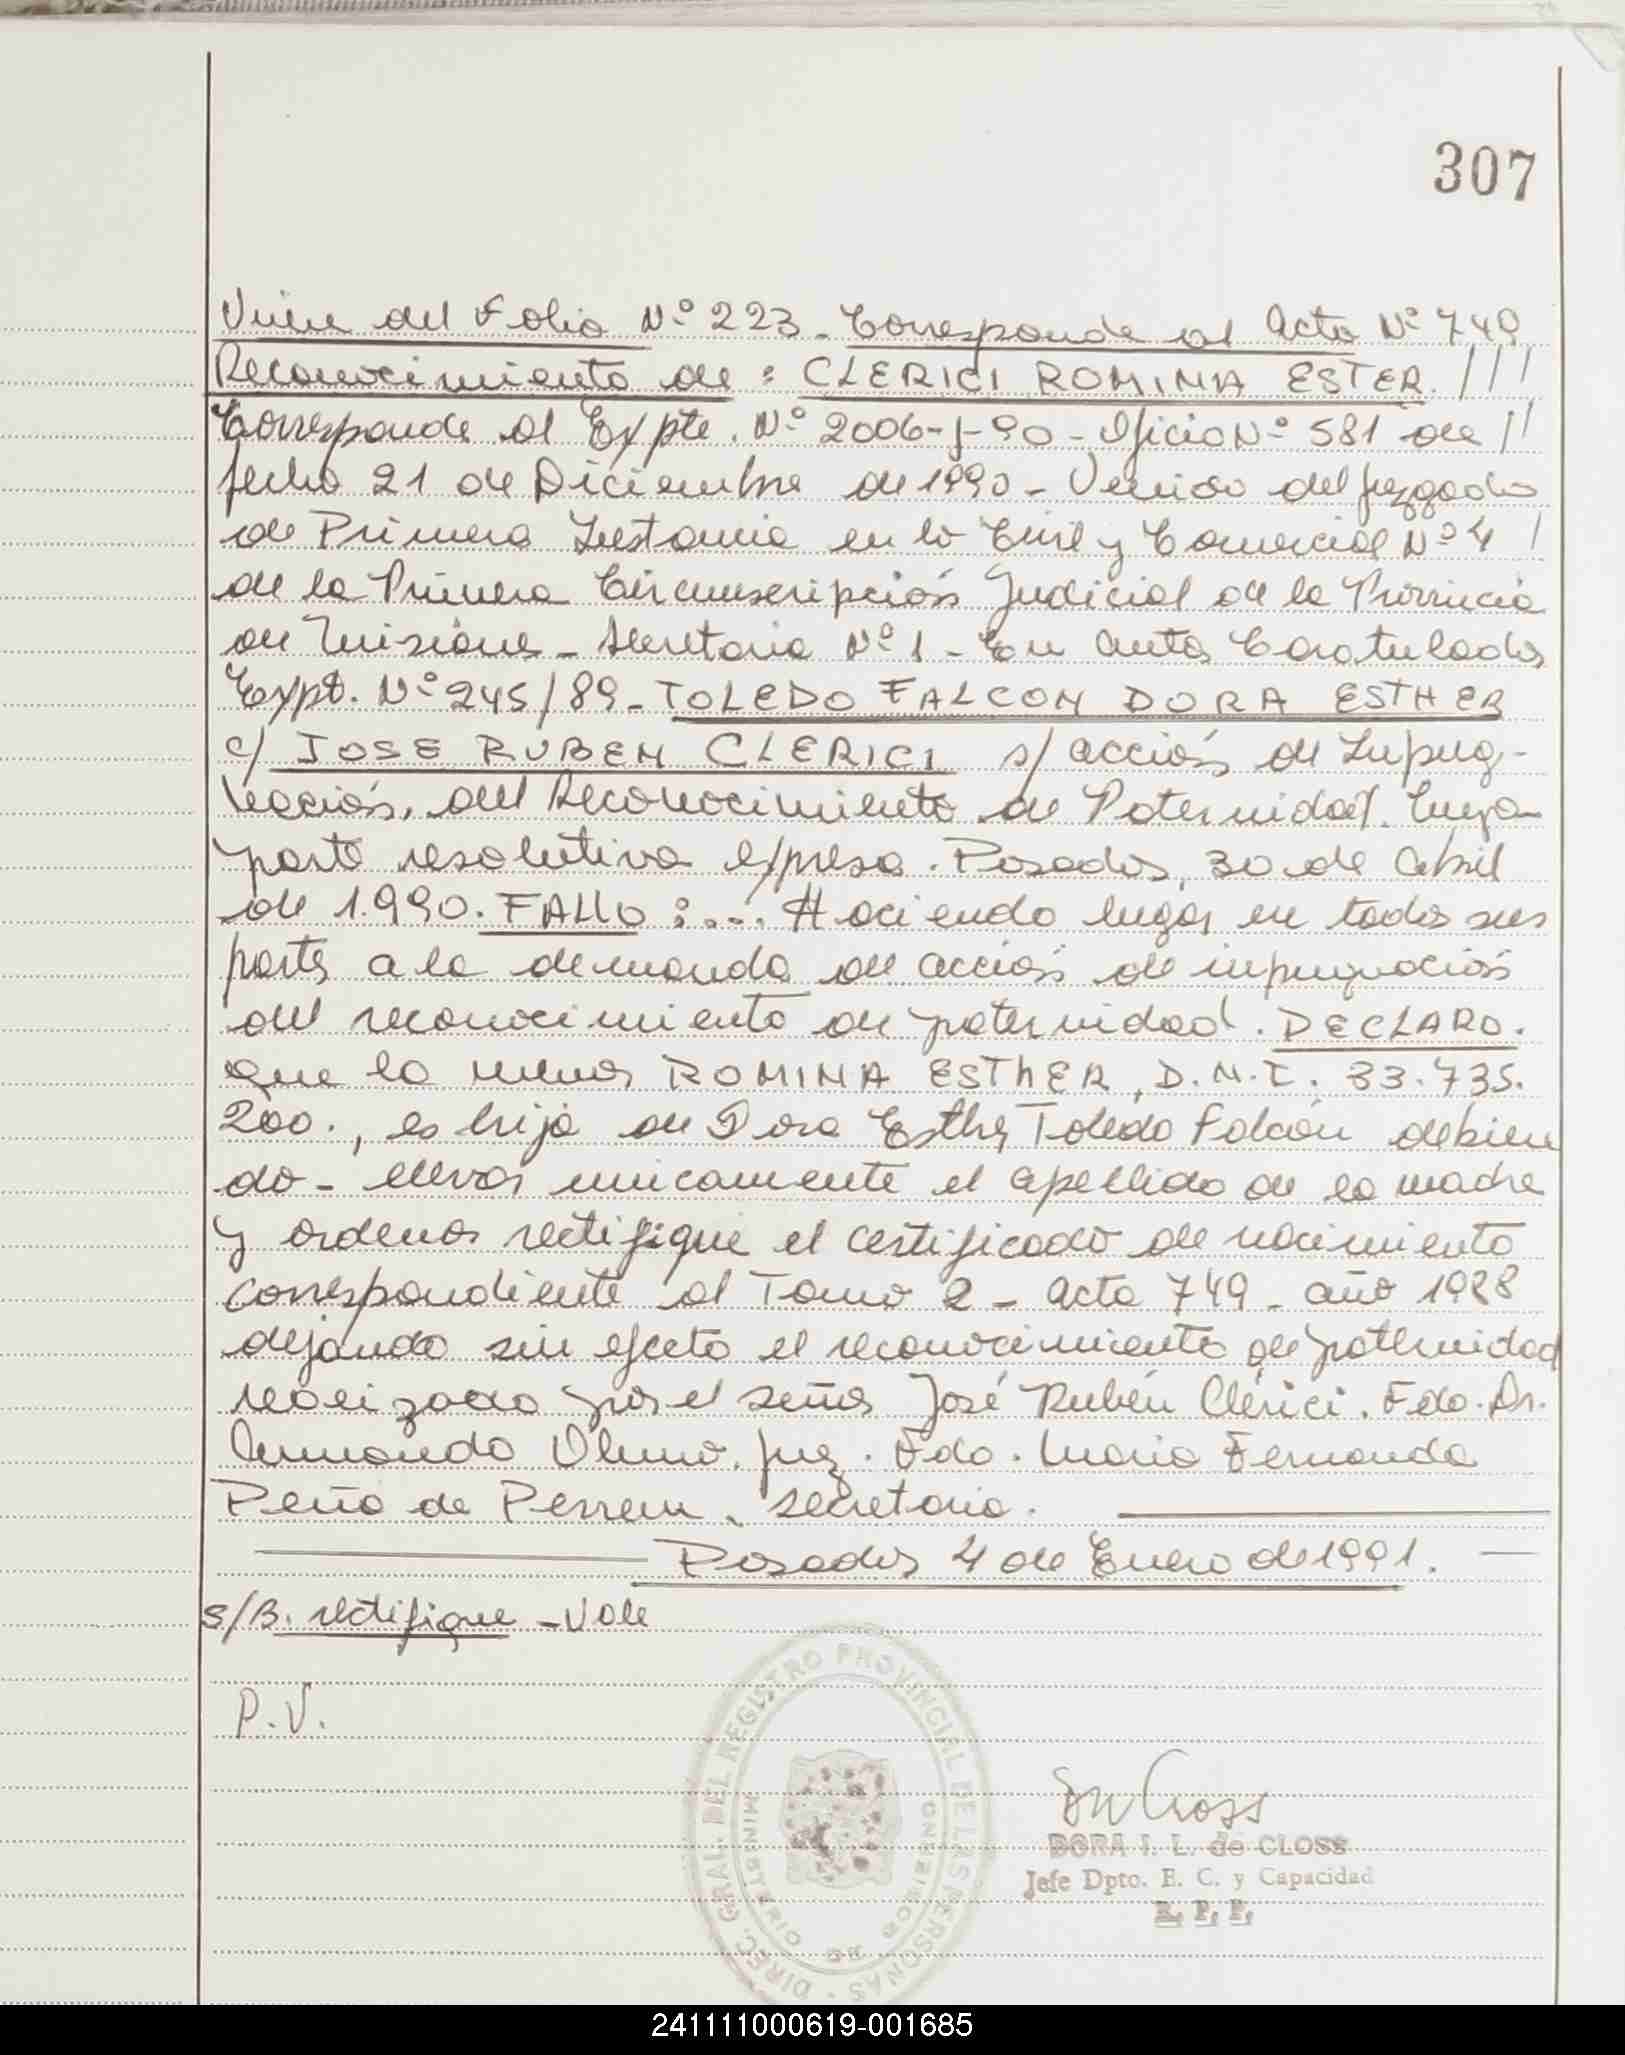 307
Viene del Folio Nº 223_ Corresponde al Acta Nº 749
Reconocimiento de: CLERICI ROMINA ESTER. ///
Corresponde al Expte. Nº 2006-J-90- Oficio Nº 581 de //
fecha 21 de Diciembre de 1990 - Venido del Juzgado
de Primera Instancia en lo Civil y Comercial Nº 4 /
de la Primera Circunscripción Judicial de la Provincia
de Misiones - Secretaria Nº 1 - En autos Caratulados
Expt. Nº 245/89_ TOLEDO FALCON DORA ESTHER
c/ JOSE RUBEN CLERICI s/ acción de Impug-
nación, del Reconocimiento de Paternidad. Cuya
parte resolutiva expresa. Posadas, 30 de Abril
de 1.990. FALLO:.... Haciendo lugar en todas sus
partes a la demanda de acción de impugnación
del reconocimiento de paternidad. DECLARO.
que la menor ROMINA ESTHER, D.N.I. 33.735.
200., es hija de Dora Esther Toledo Falcón debien
do - llevar unicamente el apellido de la madre
y ordenar rectifique el certificado de nacimiento
correspondiente al Tomo 2 - acta 749 - año 1988
dejando sin efecto el reconocimiento de paternidad
realizado por el señor José Rubén Clérici. Fdo. Dr.
Armando Olmo. Juez. Fdo. Maria Fernanda
Peña de Perrem. secretaria.
Posadas 4 de Enero de 1991.
S/B. rectifique - Vale
P.V.
DIREC. GRAL. DEL REGISTRO PROVINCIAL DE LAS PERSONAS
MINISTERIO DE GOBIERNO
DORA I. L. de CLOSS
Jefe Dpto. E. C. y Capacidad
R. P. P.
241111000619-001685